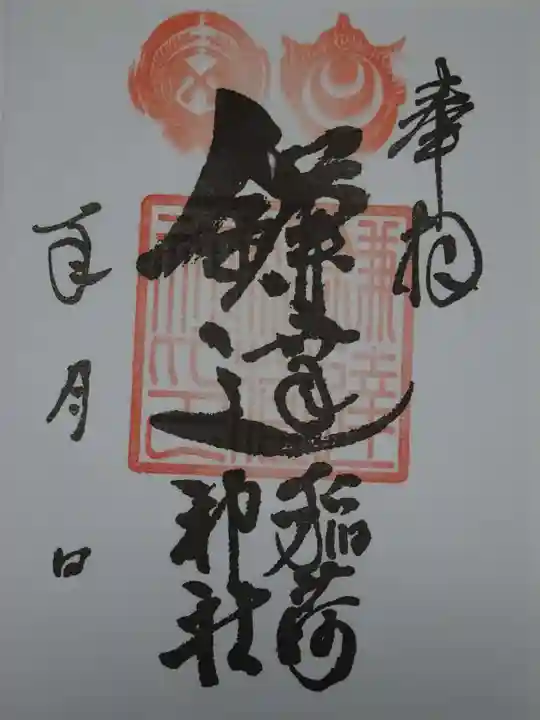 奉拝
鎌達
稲荷
神社
年 月 日